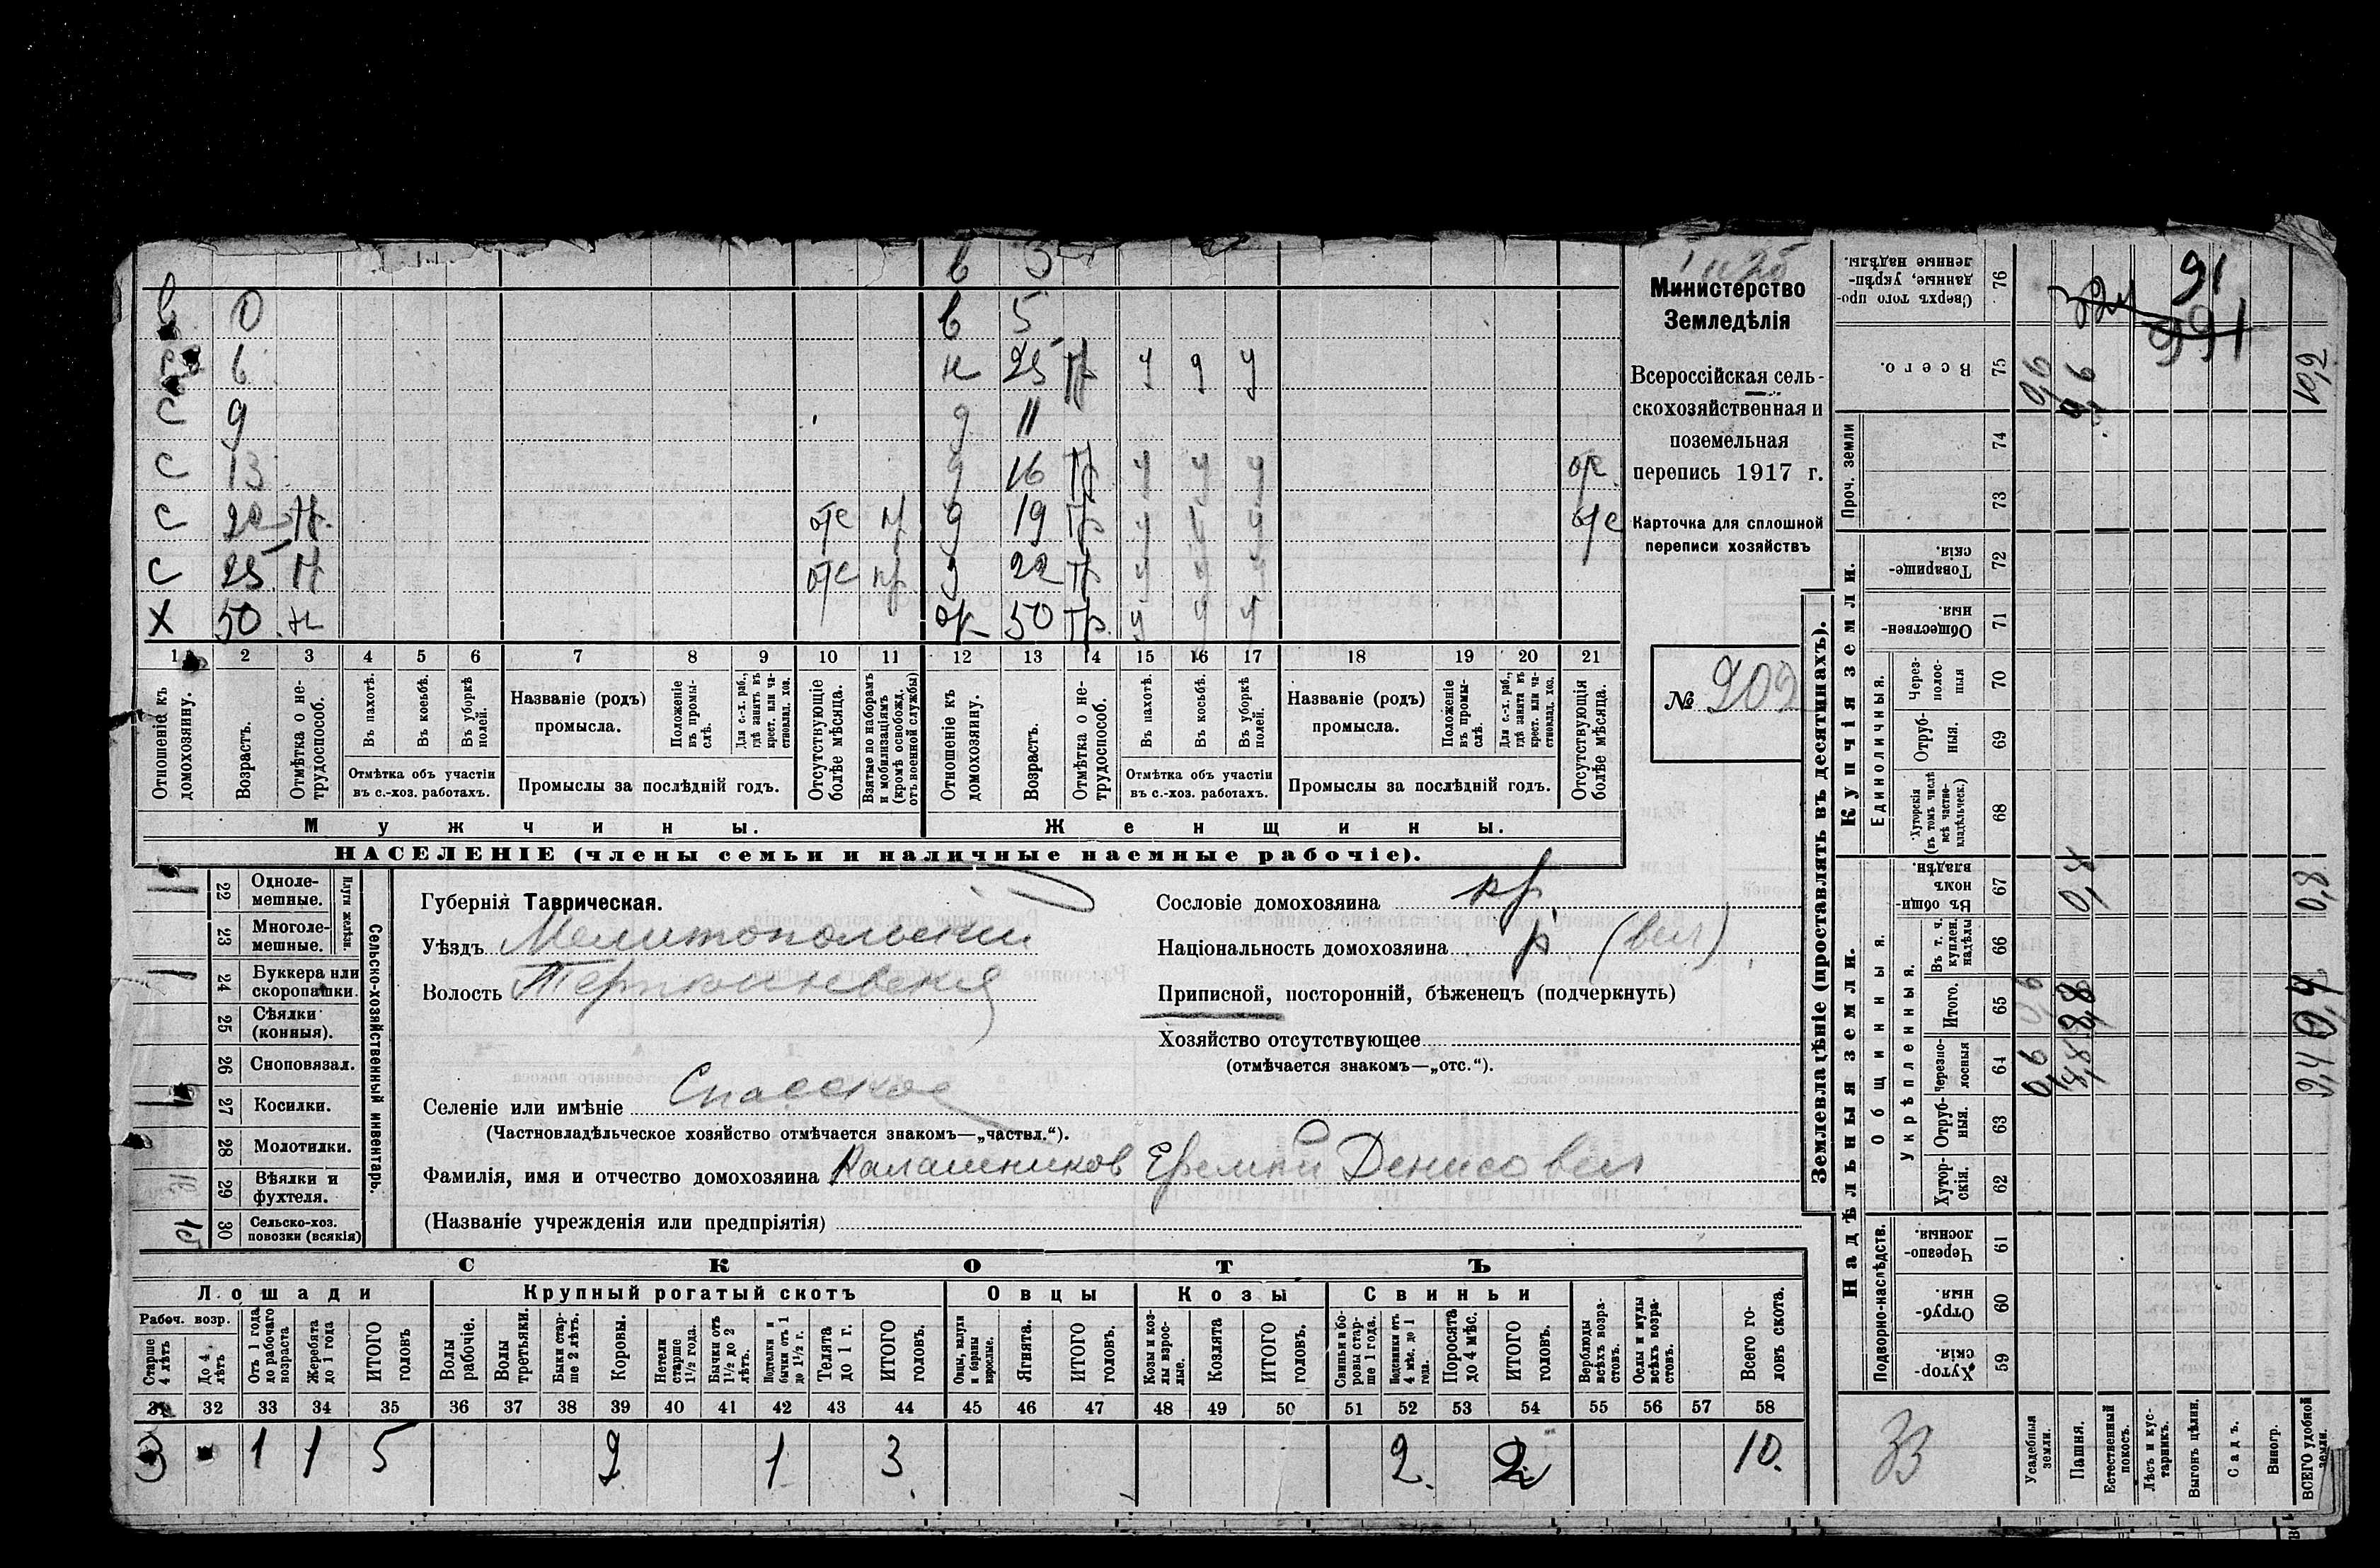 в 3
в 0 в 5
6 н 25 тр у у у
с 9 д 11
с 13 д 16 тр у у у отс
с 22 тр. отс пр д 19 тр у у у отс
с 25 тр отс пр д 22 тр у у у
Х 50 н 50 тр. у у у
1 2 3 4 5 6 7 8 9 10 11 12 13 14 15 16 17 18 19 20 21
Отношеніе къ домохозяину.
Возрастъ.
Отмѣтка о нетрудоспособ.
Въ пахотѣ.
Въ косьбѣ.
Въ уборкѣ полей.
Отмѣтка объ участіи
въ с.-хоз. работахъ.
Названіе (родъ)
промысла.
Положеніе въ промыслѣ.
Для с.-х. раб., гдѣ занятъ въ крест. или частновлад. хоз.
Промыслы за послѣдній годъ.
Отсутствующіе болѣе мѣсяца.
Взятые по наборамъ и мобилизаціямъ (кромѣ освобожд. отъ военной службы)
Отношеніе къ домохозяину.
Возрастъ.
Отмѣтка о нетрудоспособ.
Въ пахотѣ.
Въ косьбѣ.
Въ уборкѣ полей.
Отмѣтка объ участіи
въ с.-хоз. работахъ.
Названіе (родъ)
промысла.
Положеніе въ промыслѣ.
Для с.-х. раб., гдѣ занята въ крест. или частновлад. хоз.
Промыслы за послѣдній годъ.
Отсутствующія болѣе мѣсяца.
Мужчины. Женщины.
НАСЕЛЕНІЕ (члены семьи и наличные наемные рабочіе).
Министерство
Земледѣлія
Всероссійская сель-
скохозяйственная и
поземельная
перепись 1917 г.
Карточка для сплошной
переписи хозяйствъ
№ 202
Сельско-хозяйственный инвентарь.
Плуги желѣзн.
1 22 Одноле-
мешные.
23 Многоле-
мешные.
1 24 Буккера или
скоропашки.
25 Сѣялки
(конныя).
26 Сноповязал.
1 27 Косилки.
28 Молотилки.
29 Вѣялки и
фухтеля.
30 Сельско-хоз.
повозки (всякія)
Губернія Таврическая.
Уѣздъ Мелитопольскій
Волость Терпениевская
Селеніе или имѣніе Спасское
(Частновладѣльческое хозяйство отмѣчается знакомъ—„частвл.“).
Фамилія, имя и отчество домохозяина Калашников Ефемий Денисовил
(Названіе учрежденія или предпріятія)
Сословіе домохозяина кр.
Національность домохозяина р (вел)
Приписной, посторонній, бѣженецъ (подчеркнуть)
Хозяйство отсутствующее
(отмѣчается знакомъ—„отс.“).
СКОТЪ
Лошади Крупный рогатый скотъ Овцы Козы Свиньи
Рабоч. возр.
Старше 4 лѣтъ
До 4 лѣтъ
Отъ 1 года до рабочаго возраста
Жеребята до 1 года
ИТОГО головъ
Волы рабочіе.
Волы третьяки.
Быки старше 2 лѣтъ.
Коровы.
Нетели старше 1½ года.
Бычки отъ 1½ до 2 лѣтъ.
Подтелки и бычки отъ 1 до 1½ г.
Телята до 1 г.
ИТОГО головъ.
Овцы, валухи и бараны взрослые.
Ягнята.
ИТОГО головъ.
Козы и козлы взрослые.
Козлята
ИТОГО головъ.
Свиньи и боровы старше 1 года.
Подсвинки отъ 4 мѣс. до 1 года.
Поросята до 4 мѣс.
ИТОГО головъ.
Верблюды всѣхъ возрастовъ.
Ослы и мулы всѣхъ возрастовъ.
Всего головъ скота.
31 32 33 34 35 36 37 38 39 40 41 42 43 44 45 46 47 48 49 50 51 52 53 54 55 56 57 58
3 1 1 5 2 1 3 2 2 10.
Землевладѣніе (проставлять въ десятинахъ).
Надѣльныя земли.
Купчія земли.
Проч. земли
Подворно-наслѣдств.
Общинныя.
Укрѣпленныя.
Единоличныя.
Хуторскія. 59
Отрубныя. 60
Черезполосныя. 61
Хуторскія. 62
Отрубныя. 63
Черезполосныя 64 0,6 8,8 9,4
Итого. 65 0,6 8,8 9,4
Въ т. ч. куплен. надѣлы 66
Въ общиномъ владѣн. 67 0,8 0,8
Хуторскія (въ томъ числѣ всѣ частновладѣльческ.) 68
Отрубныя. 69
Черезполосныя 70
Общественныя. 71
Товарищескія. 72
73
74
Всего. 75 0,6 9,6 10,2
Сверхъ того проданные, укрѣпленные надѣлы. 76
91
991
33
Усадебныя земли.
Пашня.
Естественный покосъ.
Лѣсъ и кустарникъ.
Выгонъ цѣлин.
Садъ.
Виногр.
ВСЕГО удобной земли.